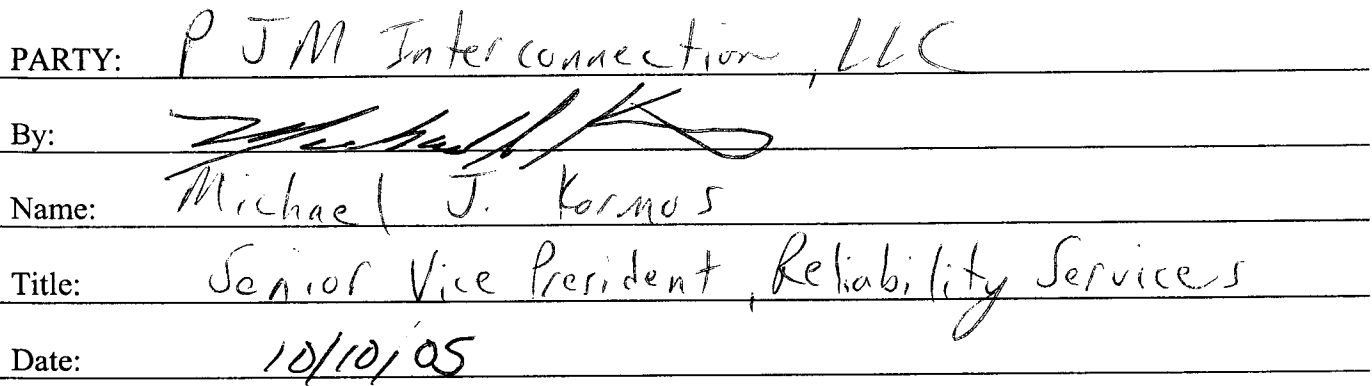 PARTY: PJM Interconnection, LLC
By:
Name: Michael J. Kormos
Title: Senior Vice President, Reliability Services
Date: 10/10/05